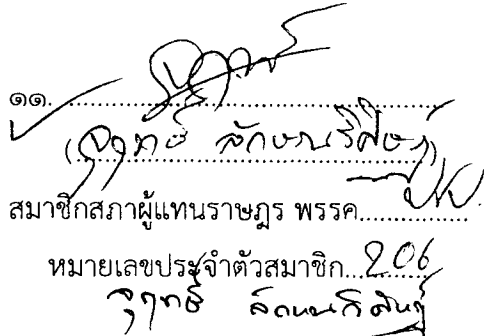 ๑๑.
(จุฤทธิ์ ลักษณวิศิษฏ์)
สมาชิกสภาผู้แทนราษฎร พรรค ปชป.
หมายเลขประจำตัวสมาชิก 206
จุฤทธิ์ ลักษณวิศิษฏ์